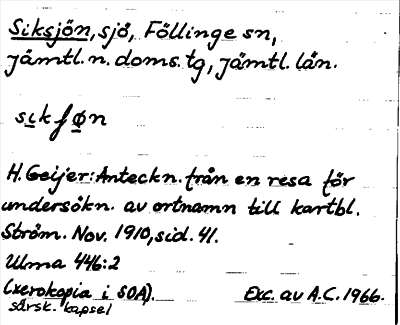 Siksjön, sjö, Föllinge sn,
Jämtl. n. doms. tg, Jämtl. län.
sikʃøn
H. Geijer: Anteckn. från en resa för
undersökn. av ortnamn till kartbl.
Ström. Nov. 1910, sid. 41.
Ulma 446:2
(xerokopia i SOA).
särsk. kapsel
Exc. av A.C. 1966.